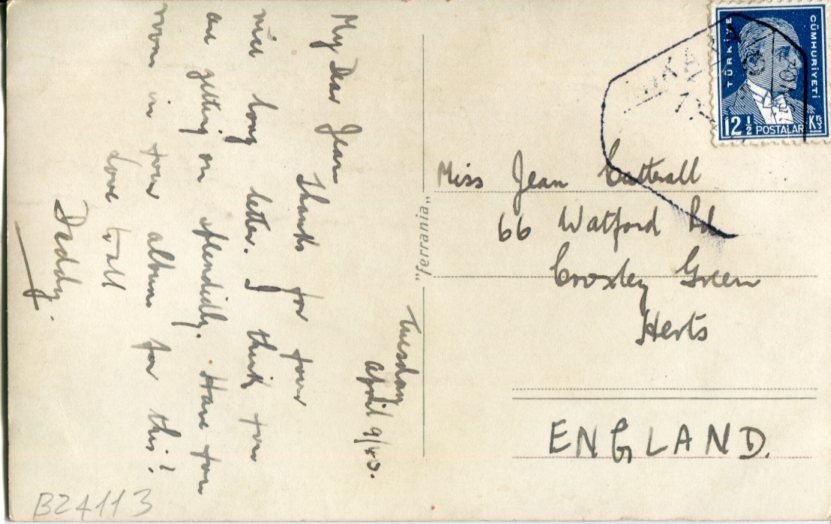 Tuesday
April 9/40.
My Dear Jean
Thanks for your
nice long letter. I think you
are getting on splendidly. Have you
room in your album for this!
Love to all
Daddy.
B24113
"ferrania"
TÜRKİYE
CÜMHURİYETİ
12 1/2 POSTALARI
Miss Jean Catterall
66 Watford Rd
Croxley Green
Herts
ENGLAND.